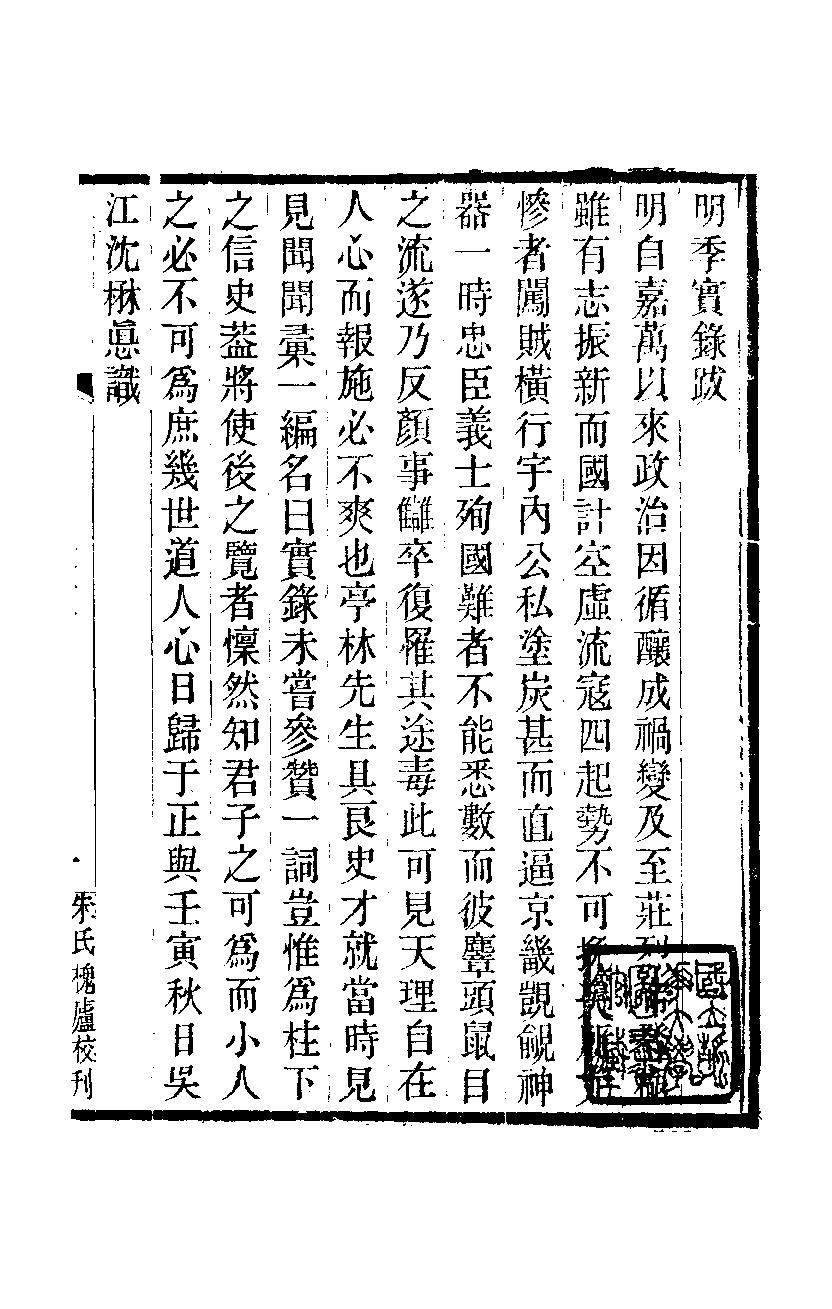 明季實錄跋
明自嘉萬以來政治因循釀成禍變及至莊烈
雖有志振新而國計空虛流寇四起勢不可
慘者闖賊橫行宇內公私塗炭甚而直逼京畿覬覦神
器一時忠臣義士殉國難者不能悉數而彼麞頭鼠目
之流遂乃反顏事讎卒復罹其途毒此可見天理自在
人心而報施必不爽也亭林先生具良史才就當時見
見聞聞彙一編名曰實錄未嘗參贊一詞豈惟為柱下
之信史葢將使後之覽者懍然知君子之可爲而小人
之必不可爲庶幾世道人心日歸于正與壬寅秋日吳
江沈楙悳識
朱氏槐廬校刊